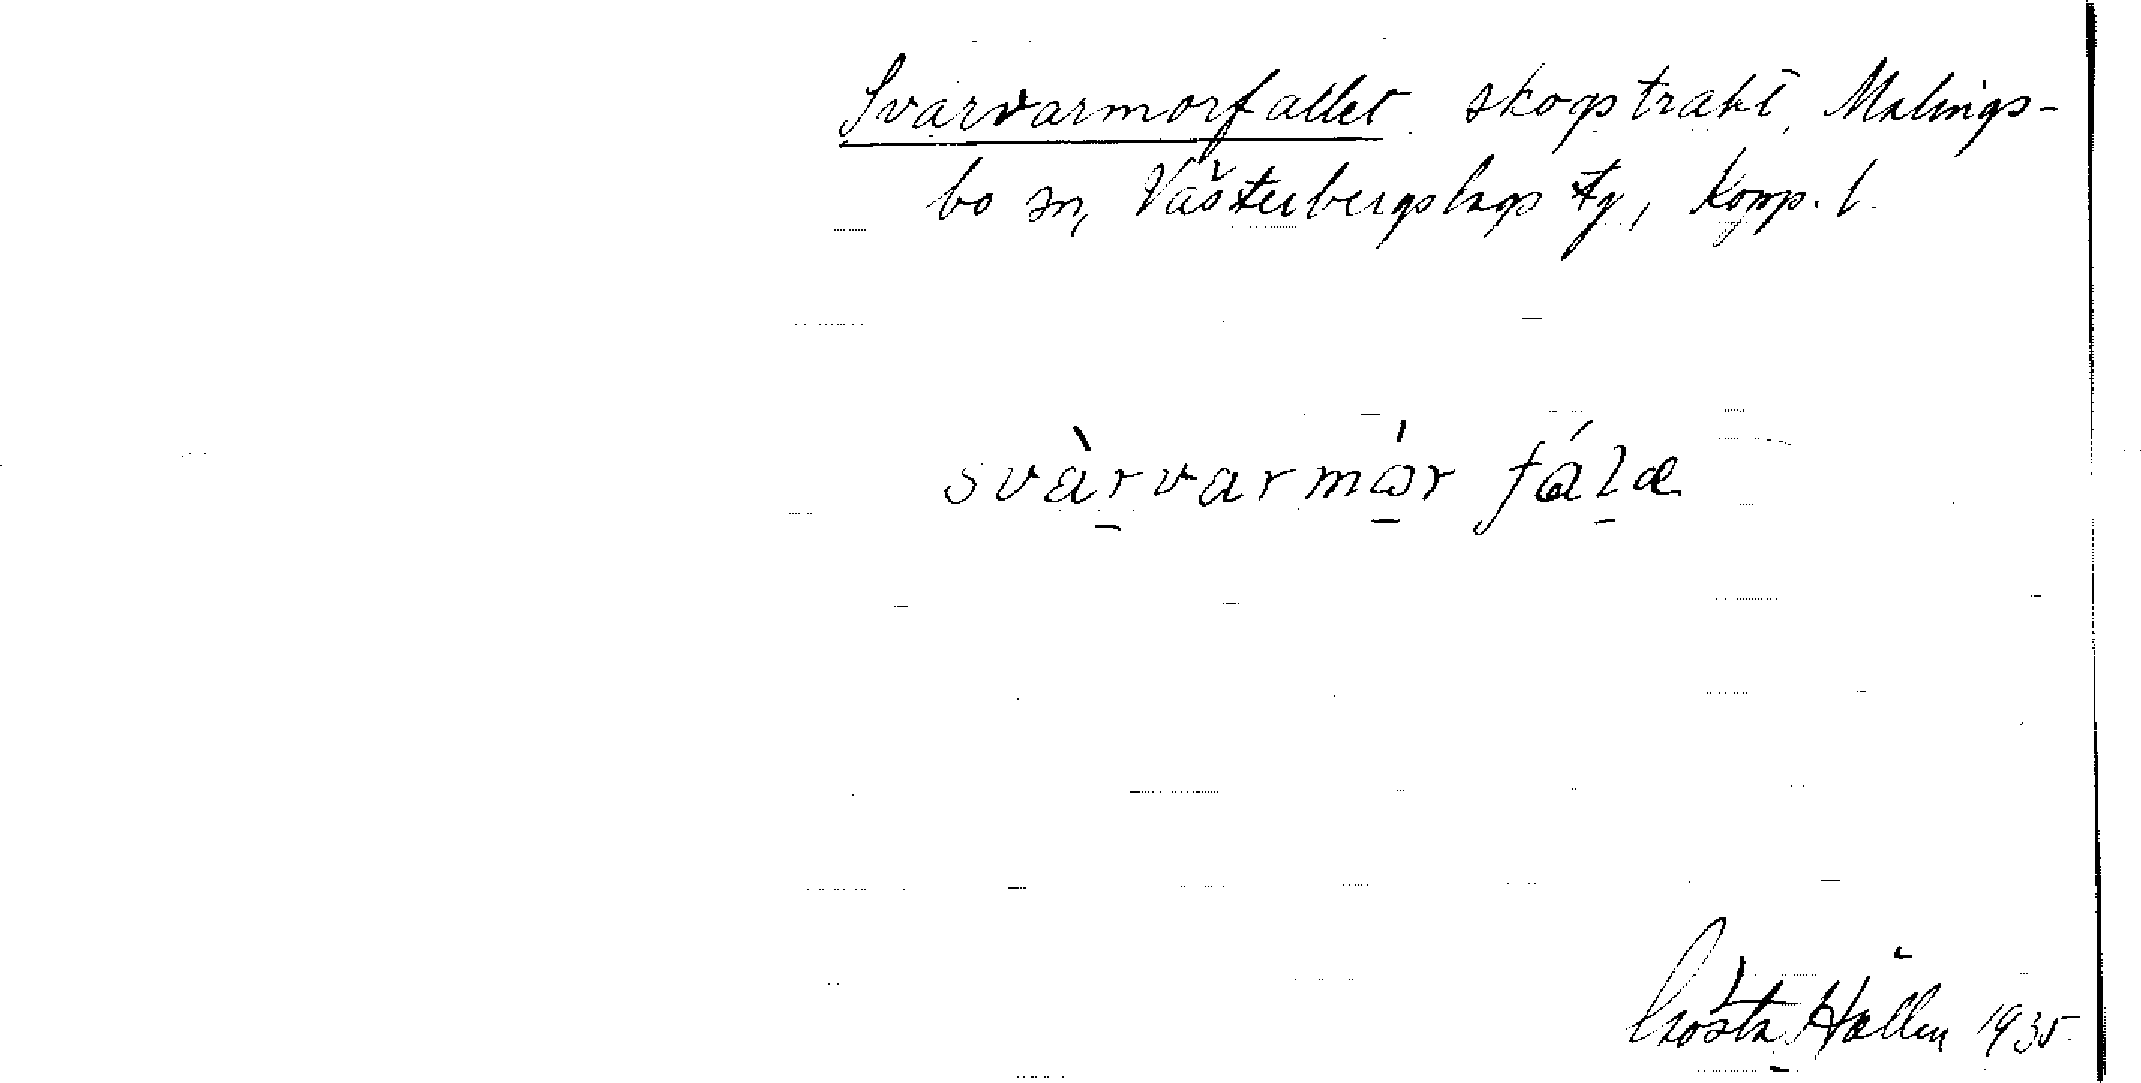 Svarvarmorfallet, skogstrakt, Malings-
bo sn, Västerbergslags tg, Kopp. l.
svàrvarmòr fála
Gösta Hallén 1935.